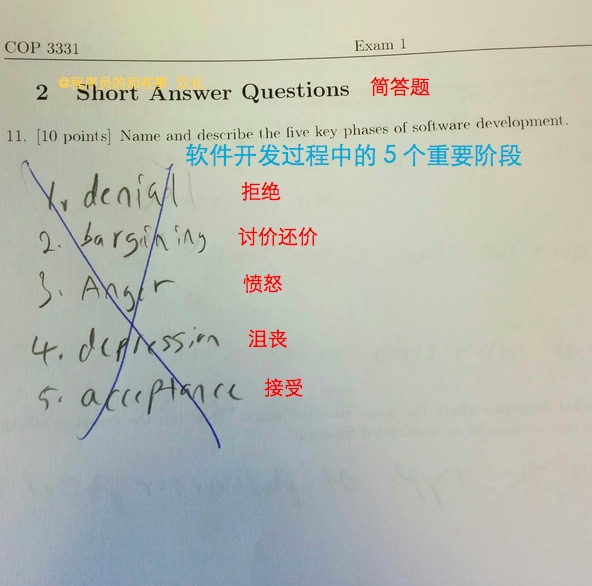 COP 3331 Exam 1
@程序员的那些事
2 Short Answer Questions 简答题
11. [10 points] Name and describe the five key phases of software development.
软件开发过程中的 5 个重要阶段
1. denial 拒绝
2. bargining 讨价还价
3. Anger 愤怒
4. depression 沮丧
5. acceptance 接受